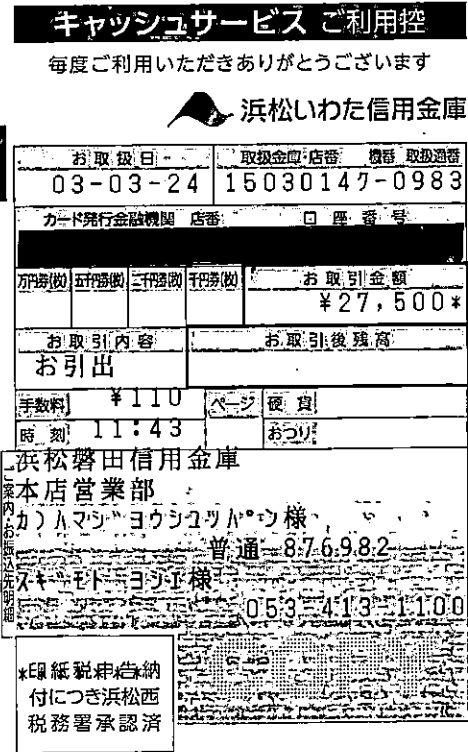 キャッシュサービス ご利用控
毎度ご利用いただきありがとうございます
浜松いわた信用金庫
お取扱日 取扱金庫・店番 機番 取扱通番
03-03-24 15030147-0983
カード発行金融機関 店番 口座番号
万円券(枚) 五千円券(枚) 二千円券(枚) 千円券(枚) お取引金額
¥27,500*
お取引内容 お取引後残高
お引出
手数料 ¥110 ページ 硬貨
時刻 11:43 おつり
ご案内・お振込先明細
浜松磐田信用金庫
本店営業部
カ)ハマシ゛ヨウシユツハ゜ン様
普通 876982
スキ゛モト ヨシエ様
053-413-1100
*印紙税申告納
付につき浜松西
税務署承認済